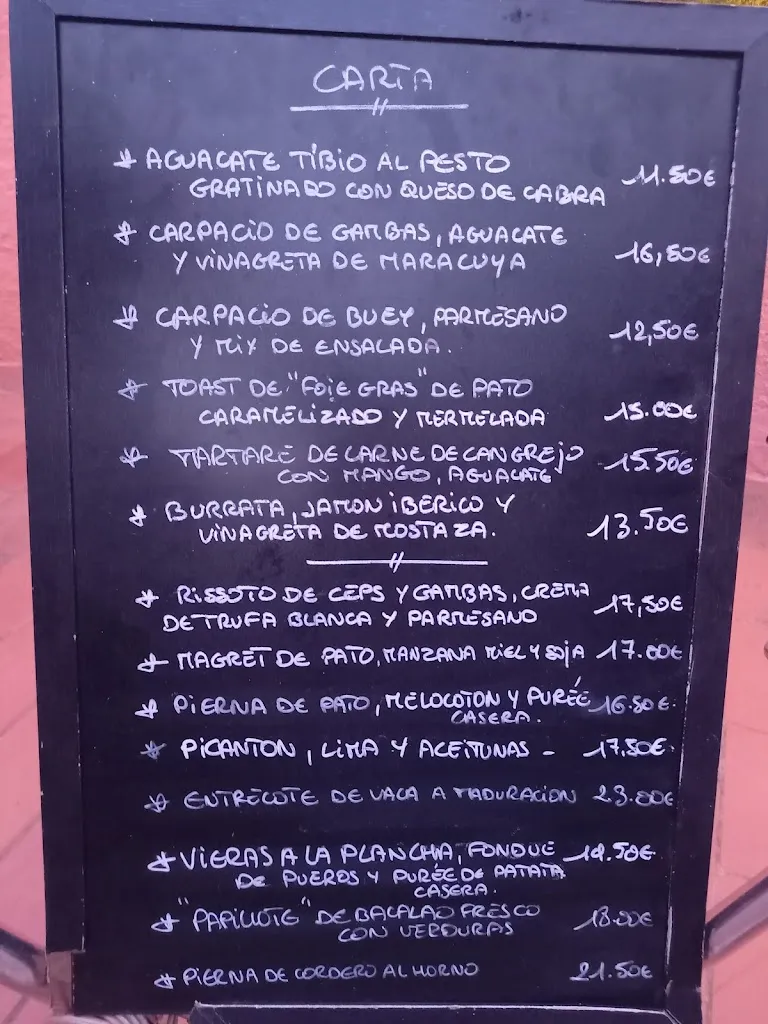 CARTA
* AGUACATE TÍBIO AL PESTO
GRATINADO CON QUESO DE CABRA 11.50€
* CARPACIO DE GAMBAS, AGUACATE
Y VINAGRETA DE MARACUYA 16,50€
* CARPACIO DE BUEY, PARMESANO
Y MIX DE ENSALADA. 12,50€
* TOAST DE "FOIE GRAS" DE PATO
CARAMELIZADO Y MERMELADA 15.00€
* TARTARE DE CARNE DE CANGREJO
CON MANGO, AGUACATE 15.50€
* BURRATA, JAMON IBERICO Y
VINAGRETA DE MOSTAZA. 13.50€
* RISSOTO DE CEPS Y GAMBAS, CREMA
DE TRUFA BLANCA Y PARMESANO 17,50€
* MAGRET DE PATO, MANZANA MIEL Y SOJA 17.00€
* PIERNA DE PATO, MELOCOTON Y PURÉE
CASERA. 16.50€.
* PICANTON, LIMA Y ACEITUNAS - 17,50€.
* ENTRECOTE DE VACA A MADURACION 23.00€
* VIERAS A LA PLANCHA, FONDUE
DE PUEROS Y PURÉE DE PATATA
CASERA.
* "PAPILLOTE" DE BACALAO FRESCO
CON VERDURAS 18.00€
* PIERNA DE CORDERO AL HORNO 21.50€